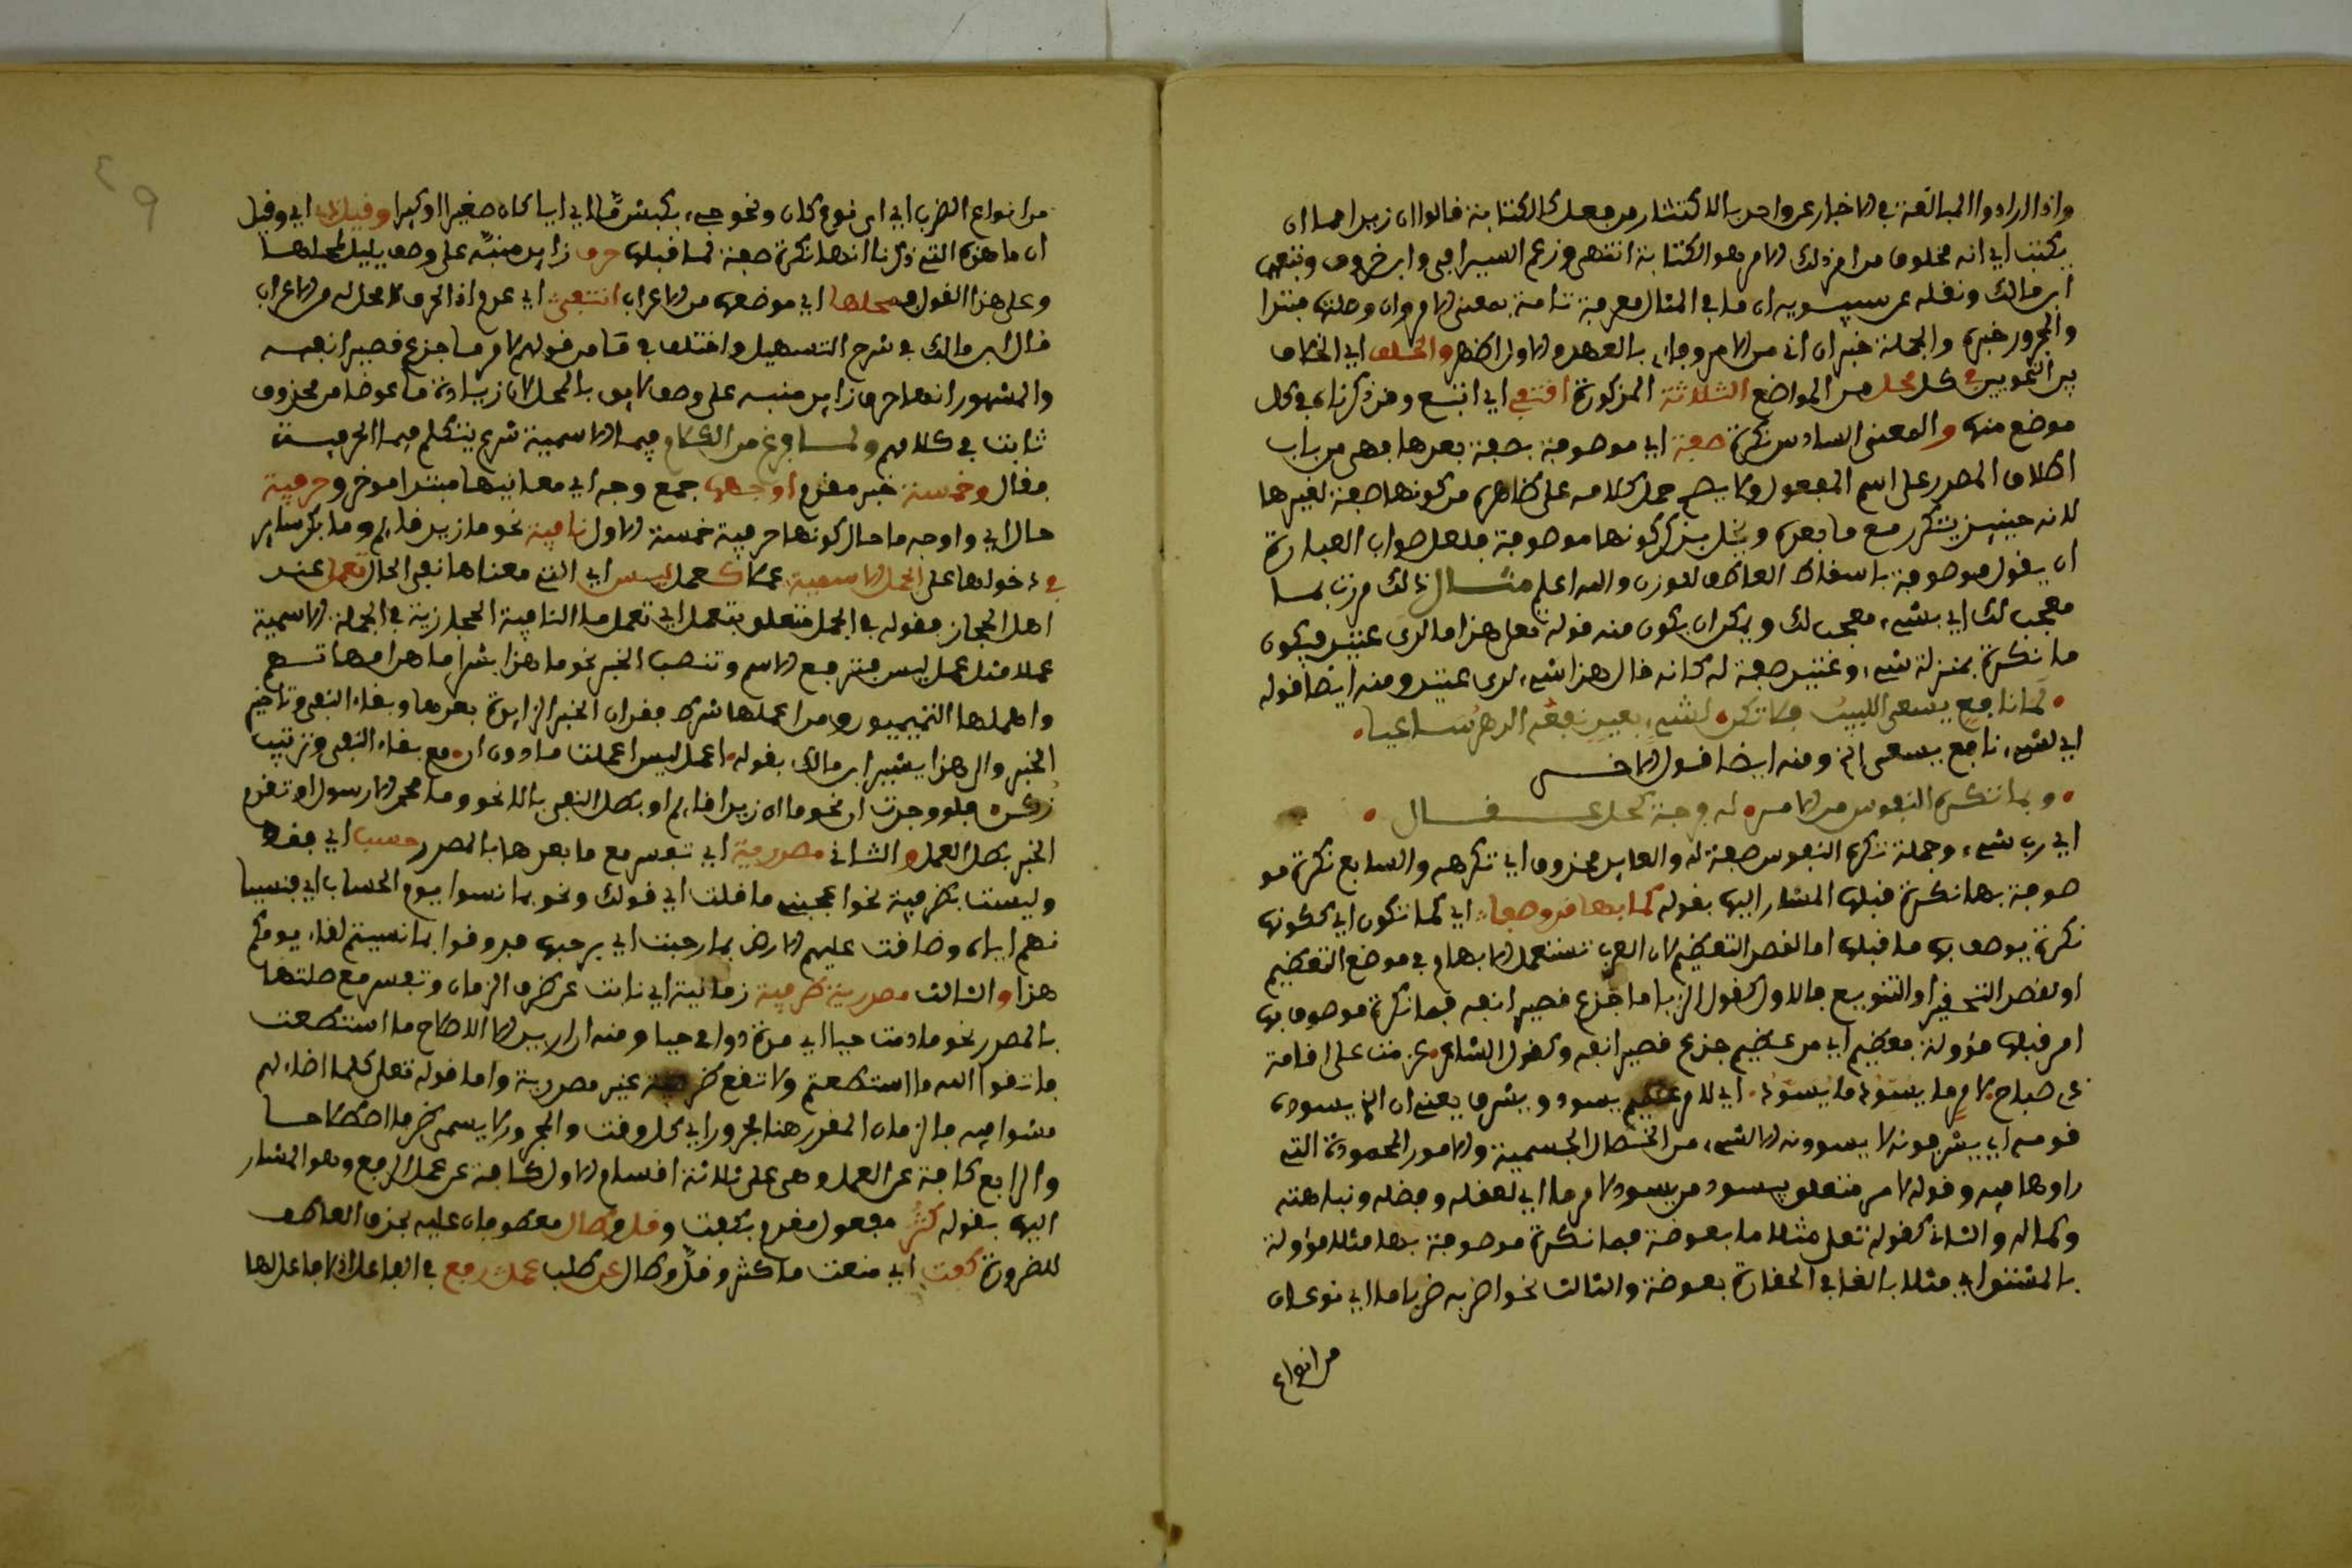 واذا ارادوا المبالغة في الاخبار عن واحد بالاكثار من فعل كالكتابة قالوا ان زيدا مما ان
يكتب اي انه مخلوق من امر ذلك الامر هو الكتابة انتهى وزعم السيرافي وابن خروف وتبعهم
ابن مالك ونقله عن سيبويه ان ما في المثال معرفة تامة بمعنى الامر وان وصلتها مبتدا
والمجرور خبره والجملة خبر ان اي من الامر والاول اظهر والخلف اي الخلاف
بين النحويين في كل محل من المواضع الثلاثة المذكورة اقتفي اي اتبع وقد ذكرناه في كل
موضع منها والمعنى السادس نكرة صفة اي موصوفة بصفة بعدها فهي من باب
اطلاق المصدر على اسم المفعول ولا يصح حمل كلامه على ظاهره من كونها صفة لغيرها
لانه حينئذ يتكرر مع ما بعده ويخل بذكر كونها موصوفة فلعل صواب العبارة
ان يقول موصوفة باسقاط العاطف للوزن والله اعلم مثال ذلك مررت بما
معجب لك اي بشيء معجب لك ويمكن ان يكون منه قوله تعلى هذا ما لدي عتيد فيكون
ما نكرة بمنزلة شيء وعتيد صفة له كانه قال هذا شيء لدي عتيد ومنه ايضا قوله
لما نافع يسعى اللبيب فلا تكن لشيء بعيد نفعه الدهر ساعيا
اي لشيء نافع يسعى الخ ومنه ايضا قول الاخر
ربما تكره النفوس من الامر له فرجة كحل عقال
اي رب شيء وجملة تكره النفوس صفة له والعايد محذوف اي تكرهه والسابع نكرة مو
صوفة بها نكرة قبلها المشار اليها بقوله كما بها قد وصفا اي كما تكون اي كونها
نكرة يوصف بها ما قبلها اما لقصد التعظيم لان العرب تستعمل الابهام في موضع التعظيم
او لقصد التحقير او التنويع فالاول كقول الزبا ما جدع قصير انفه فما نكرة موصوف بها
امر قبلها مؤولة بعظيم اي امر عظيم جدع قصير انفه وكقول الشاعر عزمت على اقامة
ذي صباح لامر ما يسود ما يسود اي لامر عظيم يسود ويشرف يعني ان الذي يسوده
قومه اي يشرفونه لا يسودونه الا لشيء من الخصال الجسمية والامور المحمودة التي
راوها فيه وقوله لامر متعلق بيسود من يسود لامر ما اي لعقله وفضله ونباهته
وكماله والثاني كقوله تعلى مثلا ما بعوضة فما نكرة موصوفة بها مثلا مؤولة
بالمشتق اي مثلا بالغا في الحقارة بعوضة والثالث نحو اضربه ضربا ما اي نوعا
من انواع
من انواع الضرب اي اي نوع كان ونحو جيء بكبش ما اي ايا كان صغيرا او كبيرا وقيل اي وقيل
ان ما هذه التي ذكرنا انها نكرة صفة لما قبلها حرف زايد منبه على وصف يليق لمحلها
وعلى هذا القول فمحلها اي موضعها من الاعراب انتفى اي عدم اذ الحرف لا محل له من الاعراب
قال ابن مالك في شرح التسهيل واختلف في ما من قولهم لامر ما جدع قصير انفه
والمشهور انها حرف زايد منبه على وصف لايق بالمحل لان زيادة ما عوضا من محذوف
ثابت في كلامهم ولما فرغ من الكلام فيما الاسمية شرع يتكلم فيما الحرفية
فقال وخمسة خبر مقدم اوجهها جمع وجه اي معانيها مبتدا موخر وحرفية
حال اي واوجه ما حال كونها حرفية خمسة الاول نافية نحو ما زيد قايم وما بكر ساير
في دخولها على الجمل الاسمية عملا كعمل ليس اي التي معناها نفي الحال تعمل عند
اهل الحجاز فقوله في الجمل متعلق بتعمل اي تعمل ما النافية الحجازية في الجملة الاسمية
عملا مثل عمل ليس فترفع الاسم وتنصب الخبر نحو ما هذا بشرا ما هن امهاتهم
واهملها التميميون ومن اعملها شرط فقدان الخبر الزايدة بعدها وبقاء النفي وتاخير
الخبر والى هذا يشير ابن مالك بقوله اعمال ليس اعملت ما دون ان مع بقاء النفي وترتيب
زكن فلو وجدت ان نحو ما ان زيد قايم او بطل النفي بالا نحو وما محمد الا رسول او تقدم
الخبر بطل العمل والثاني مصدرية اي تفسر مع ما بعدها بالمصدر حسب اي فقط
وليست بظرفية نحو اعجبني ما قلت اي قولك ونحو بما نسوا يوم الحساب اي فنسيا
نهم اياه وضاقت عليهم الارض بما رحبت اي برحبها فذوقوا بما نسيتم لقاء يومكم
هذا والثالث مصدرية ظرفية زمانية اي نابت عن ظرف الزمان وتفسر مع صلتها
بالمصدر نحو ما دمت حيا اي مدة دوامي حيا ومنه ان اريد الا الاصلاح ما استطعت
فاتقوا الله ما استطعتم ولا تقع ظرفية غير مصدرية واما قوله تعلى كلما اضاء لهم
مشوا فيه فالزمان المقدر هنا مجرور اي كل وقت والمجرور لا يسمى ظرفا اصطلاحا
والرابع كافة عن العمل وهي على ثلاثة اقسام الاول كافة عن عمل الرفع وهو المشار
اليها بقوله كثر مفعول مقدم بكفت وقل وطال معطوفان عليه بحذف العاطف
للضرورة كفت اي منعت ما كثر وقل وطال عن طلب عمل رفع في الفاعل فلا فاعل لها